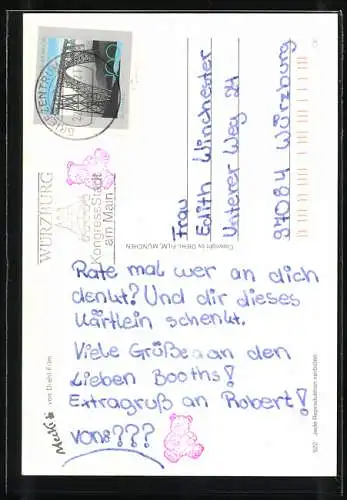 Rate mal wer an dich
denkt? Und dir dieses
Kärtlein schenkt.
Viele Größe an den
Lieben Booths!
Extragruß an Robert!
von:???
Frau
Edith Winchester
Unterer Weg 24
97084 Würzburg
WÜRZBURG
Kongress Stadt
am Main
BRIEFZENTRUM
100
Copyright by DIEHL-FILM, MÜNCHEN
Mecki von Diehl-Film
522 Jede Reproduktion verboten